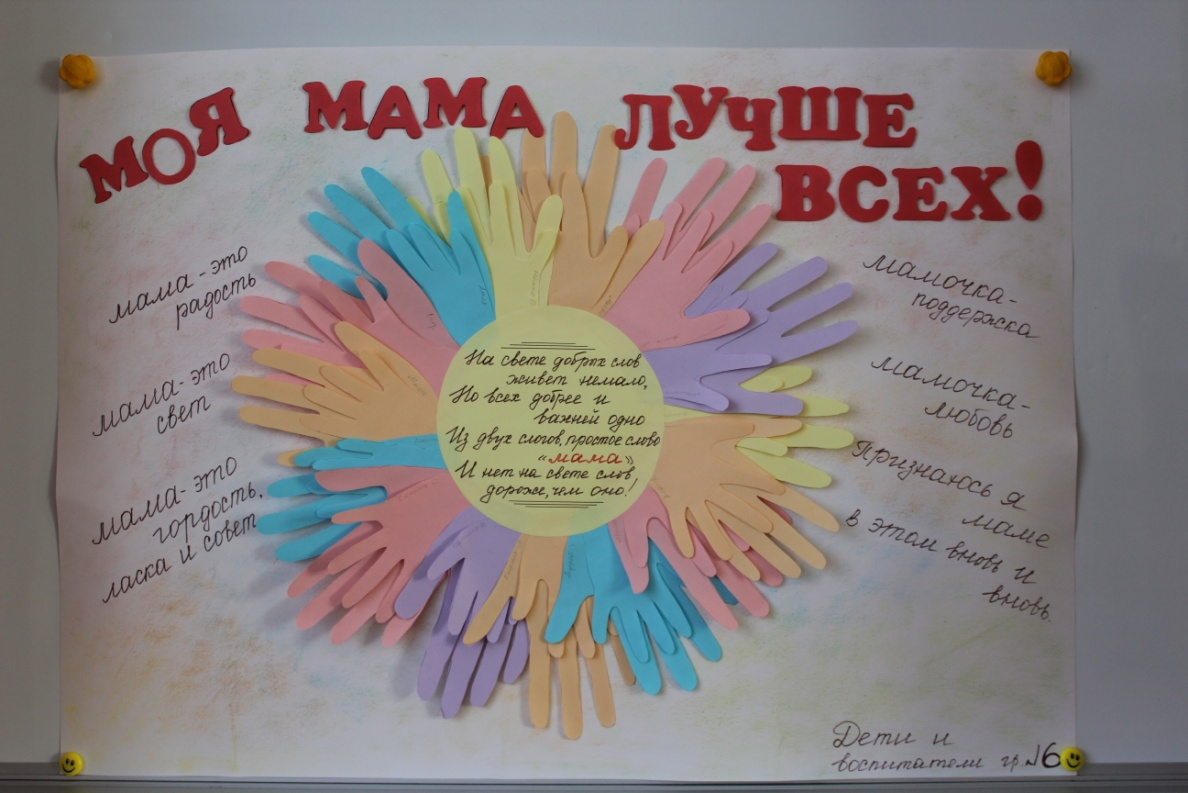 МОЯ МАМА ЛУЧШЕ
ВСЕХ!
мама - это
радость
мама - это
свет
мама - это
гордость,
ласка и совет
На свете добрых слов
живет немало,
Но всех добрее и
важней одно
Из двух слогов, простое слово
"мама"
И нет на свете слов
дороже, чем оно!
мамочка-
поддержка
мамочка-
любовь
Признаюсь я
маме
в этом вновь и
вновь.
Дети и
воспитатели гр. №6